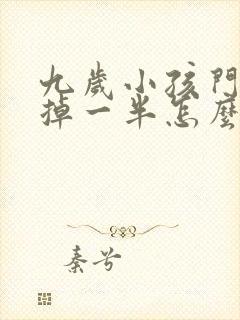 九歲小孩門
掉一半怎麼
秦兮